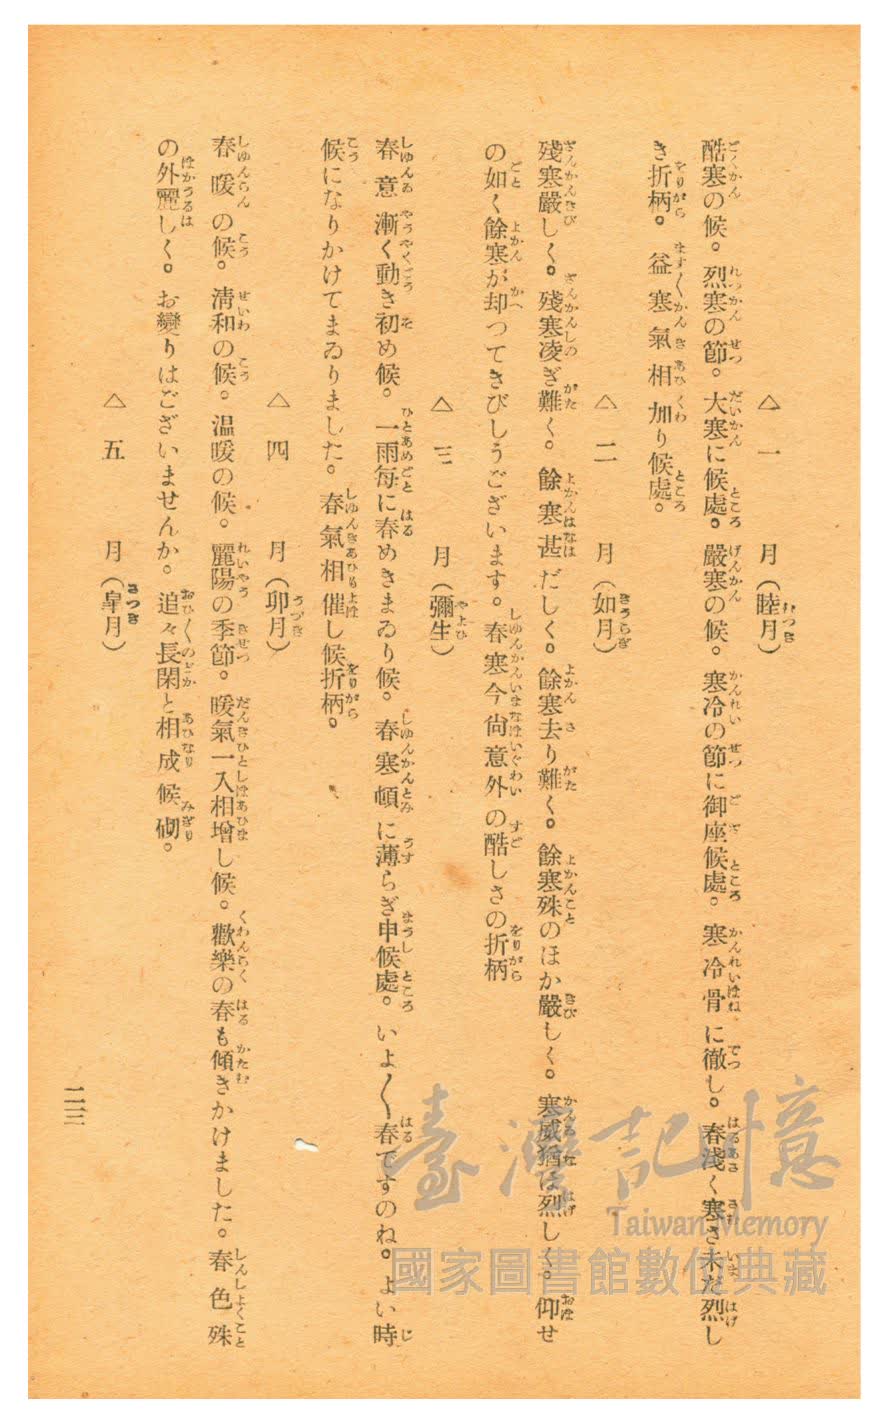 △一月(睦月)
酷寒の候。烈寒の節。大寒に候處。嚴寒の候。寒冷の節に御座候處。寒冷骨に徹し。春淺く寒さ未だ烈し
き折柄。益寒氣相加り候處。
△二月(如月)
殘寒嚴しく。殘寒凌ぎ難く。餘寒甚だしく。餘寒去り難く。餘寒殊のほか嚴しく。寒威猶ほ烈しく。仰せ
の如く餘寒が却つてきびしうございます。春寒今尙意外の酷しさの折柄
△三月(彌生)
春意漸く動き初め候。一雨每に春めきまゐり候。春寒頓に薄らぎ申候處。いよ〱春ですのね。よい時
候になりかけてまゐりました。春氣相催し候折柄。
△四月(卯月)
春暖の候。淸和の候。温暖の候。麗陽の季節。暖氣一入相增し候。歡樂の春も傾きかけました。春色殊
の外麗しく。お變りはございませんか。追々長閑と相成候砌。
△五月(皐月)
二三
臺灣記憶
Taiwan Memory
國家圖書館數位典藏